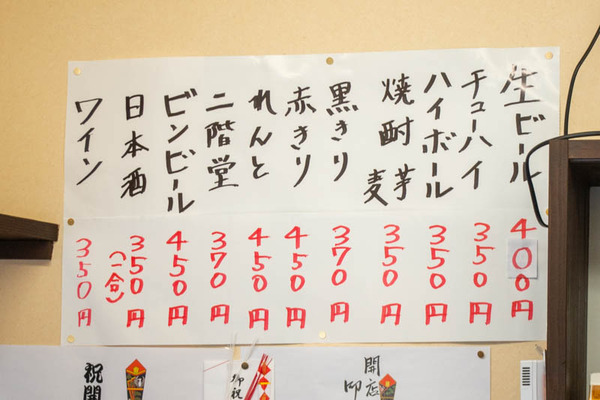 生ビール
400円
チューハイ
350円
ハイボール
350円
焼酎 芋 麦
350円
黒きり
370円
赤きり
450円
れんと
450円
二階堂
370円
ビンビール
450円
日本酒
350円
(一合)
ワイン
350円
開店
御祝
祝開